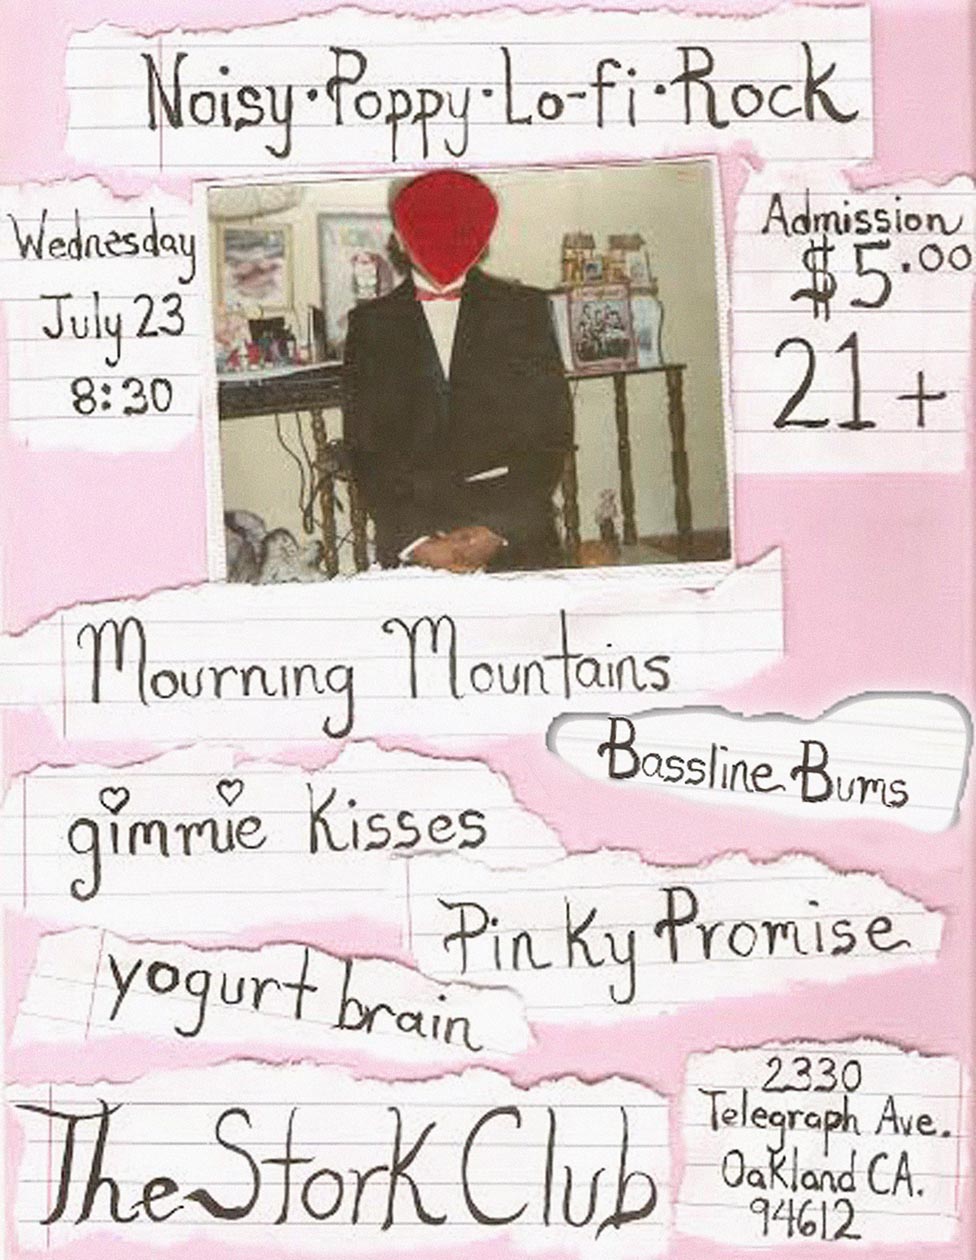 Noisy·Poppy·Lo-fi·Rock
Wednesday
July 23
8:30
Admission
$5.00
21+
Mourning Mountains
Bassline Bums
gimmie Kisses
Pinky Promise
yogurt brain
The Stork Club
2330
Telegraph Ave.
Oakland CA.
94612